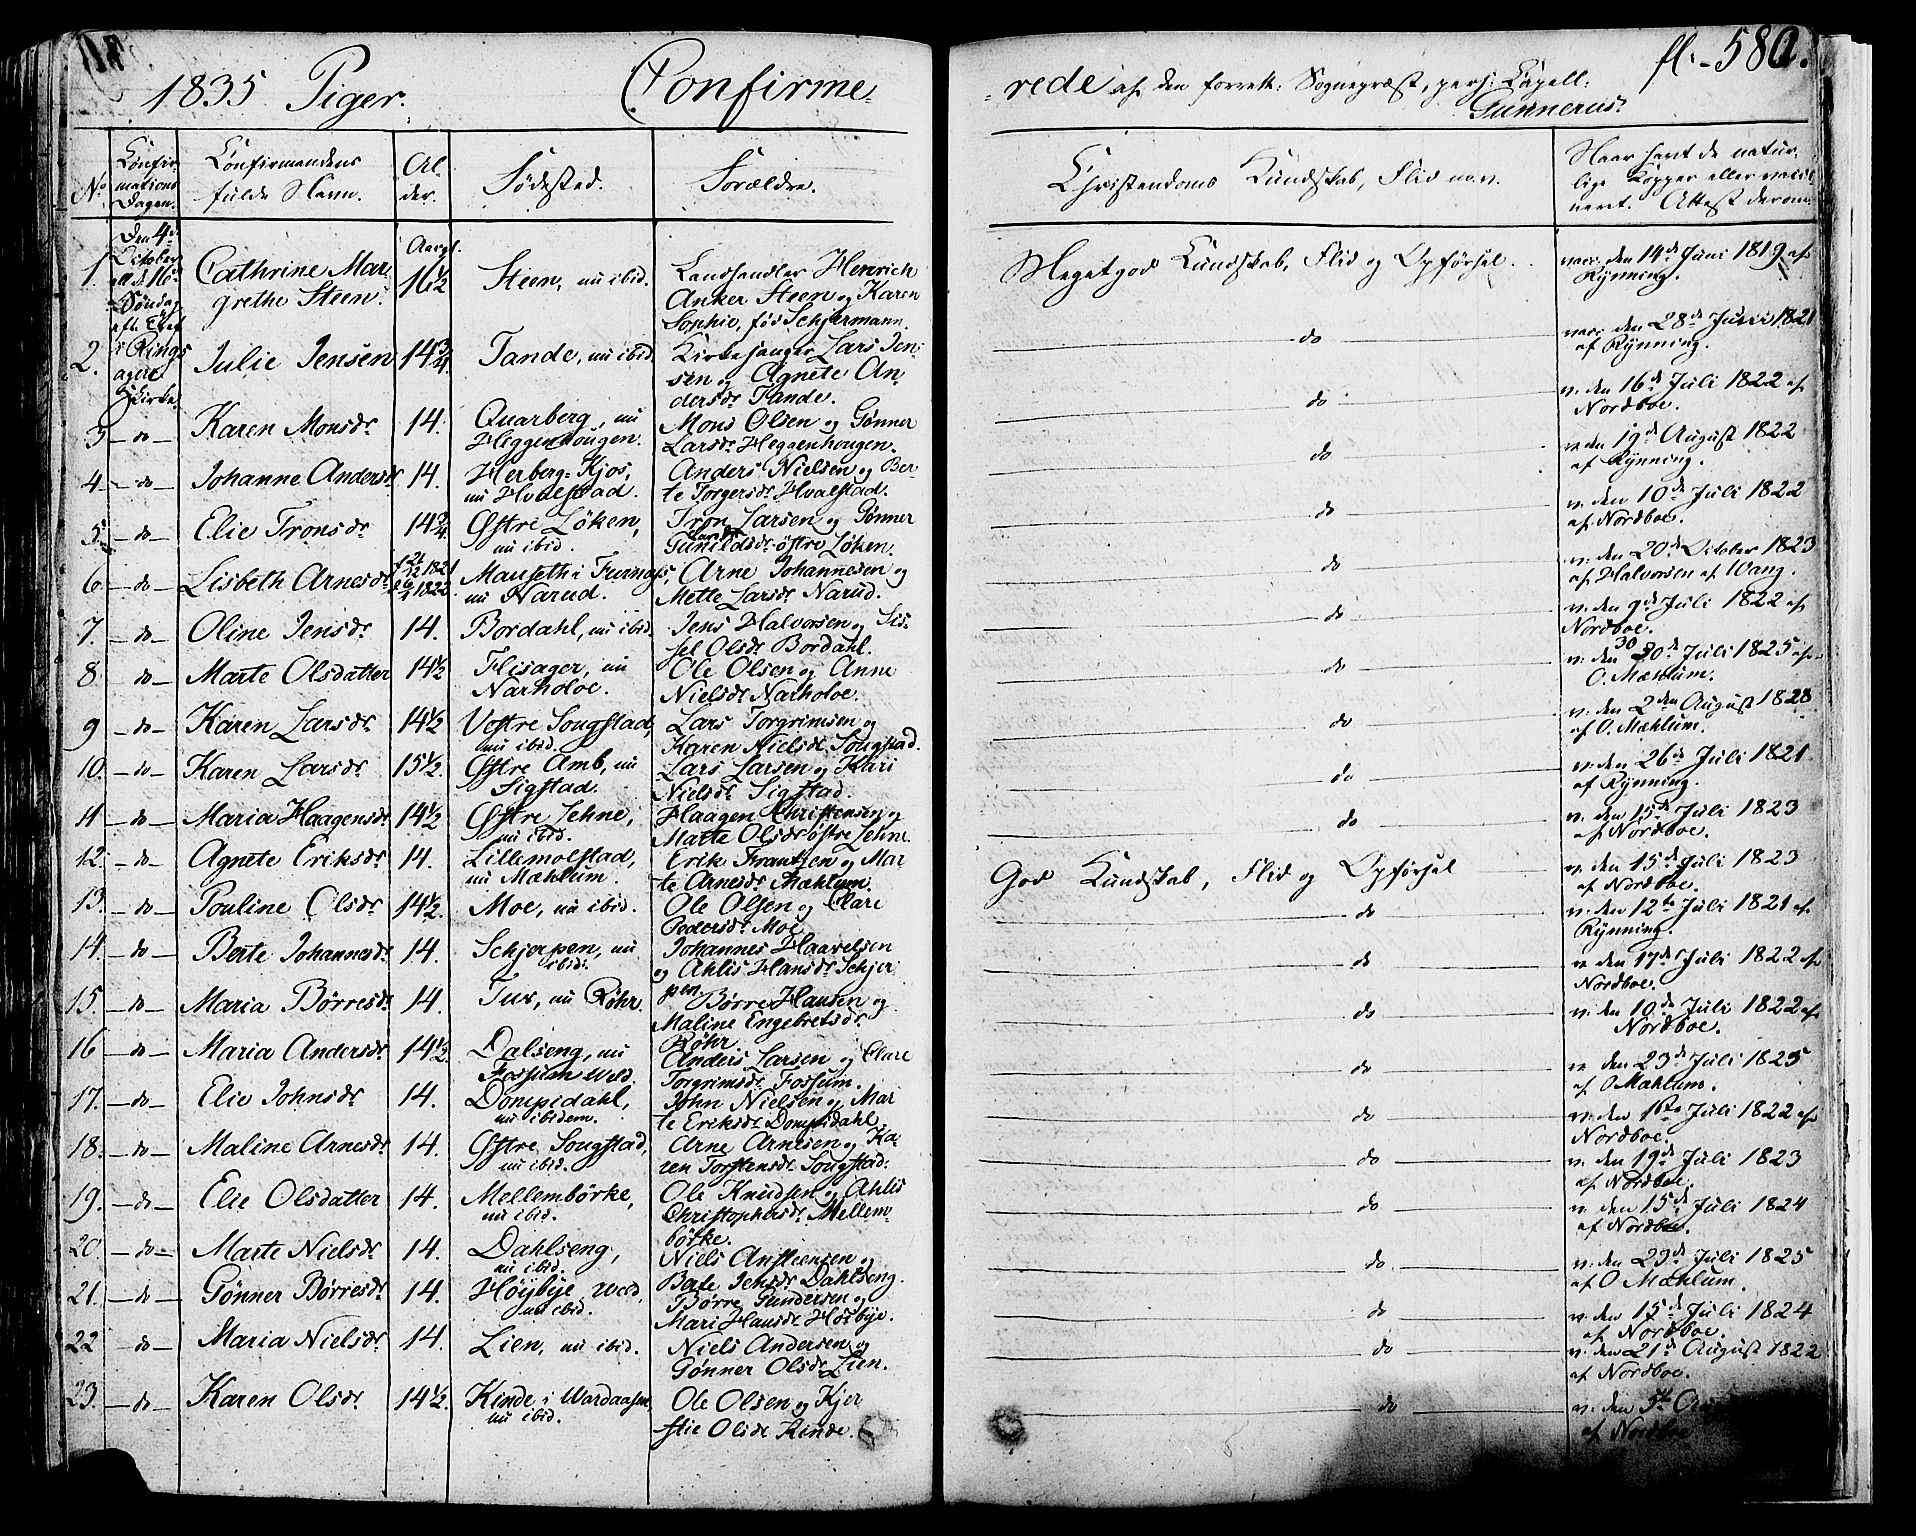 1835 Piger. Confirme=
=rede af den forrett: Sognepræst, pers: Capell:
Gunnerus.
fl. 580.
No
Confir
mations
Dagen.
Confirmandens
fulde Navn.
Al
der.
Fødested.
Forældre.
Christendoms Kundskab, Flid m.v.
Naar havt de natur-
lige Kopper eller vaccineret. Attest derom.
Den 4de
October
16de
Søndag
eft. Tref
i Rings
ager
Kirke.
Aargl.
1. Cathrine Mar
grethe Steen. 16½ Steen, nu ibid. Landhandler Henrich
Anker Steen og Karen
Sophie, fød Schjermann.
Megetgod Kundskab, Flid og Opførsel. vacc. den 14de Juni 1819 af
Rynning.
2. Julie Jensen 14¾ Tande, nu ibid. Kirkesanger Lars Jen
sen og Agnete An
dersdr Tande.
do vacc. den 28de Juni 1821
af Rynning.
3 - do - Karen Monsdr 14. Quarberg, nu
Heggenhougen. Mons Olsen og Gønner
Larsdr Heggenhougen.
do v: den 16de Juli 1822 af
Nordboe.
4 - do - Johanne Andersdr 14. Herberg-Kjos,
nu Hvalstad. Anders Nielsen og Ber
te Torgersdr Hvalstad.
do v: den 19de August 1822
af Rynning.
5 - do - Elie Tronsdr 14¾ Østre Løken,
nu ibid. Tron Larsen og Gønner
Gunildsdr østre Løken.
do v: den 10de Juli 1822
af Nordboe.
6 - do - Lisbeth Arnesdr 1821 1822 Mauseth i Furnæs,
nu Narud. Arne Johannesen og
Mette Larsdr Narud.
do v: den 20de October 1823
af Halvorsen af Wang.
7. - do - Oline Jensdr 14. Bordahl, nu ibid. Jens Halvorsen og Sis
sel Olsdr Bordahl.
do v: den 9de Juli 1822 af
Nordboe.
8 - do - Marte Olsdatter 14½ Flisager, nu
Narholoe. Ole Olsen og Anne
Nielsdr Narholoe.
do v: den 30 Juli 1825 af
O. Mæhlum.
9 - do - Karen Larsdr 14½ Vestre Sougstad,
nu ibid. Lars Torgrimsen og
Karen Nielsdr Sougstad.
do v: den 2den August 1823
af O. Mæhlum.
10. - do - Karen Larsdr 15½. Østre Amb, nu
Sigstad. Lars Larsen og Kari
Nielsdr Sigstad.
do v: den 26de Juli 1821
af Rynning.
11 - do - Maria Haagensdr 14½ Østre Jehne,
nu ibid. Haagen Christensen og
Marte Olsdr østre Jehne.
do v: den 15de Juli 1823
af Nordboe.
12. - do - Agnete Eriksdr 14. Lillemolstad,
nu Mæhlum. Erik Frantzen og Mar
te Arnesdr Mæhlum.
God Kundskab, Flid og Opførsel v: den 15de Juli 1823
af Nordboe.
13. - do - Pouline Olsdr 14½. Moe, nu ibid. Ole Olsen og Clare
Pedersdr Moe.
do v: den 12te Juli 1821 af
Rynning.
14. - do - Berte Johannesdr 14. Schjerpen, nu
ibid. Johannes Haavelsen
og Ahlis Hansdr Schjer
pen.
do v: den 17de Juli 1822 af
Nordboe.
15. - do - Maria Børresdr 14. Tux, nu Røhr. Børre Hansen og
Maline Engebretsdr
Røhr.
do v: den 10de Juli 1822 af
Nordboe.
16 - do - Maria Andersdr 14½. Dalseng, nu
Fossum Wald. Anders Larsen og Clare
Torgrimsdr Fossum.
do v: den 23de Juli 1825
af O Mæhlum.
17. - do - Elie Johnsdr 14. Dompidahl,
nu ibidem. John Nielsen og Mar
te Eriksdr Dompidahl.
do v: den 16te Juli 1822 af
Nordboe.
18. - do - Maline Arnesdr 14. Østre Sougstad,
nu ibid. Arne Arnesen og Ka-
ren Torstensdr Sougstad.
do v: den 19de Juli 1823
af Nordboe.
19. - do - Elie Olsdatter 14. Mellembørke,
nu ibid. Ole Knudsen og Ahlis
Christophersdr Mellem-
børke.
do v: den 15de Juli 1824
af Nordboe.
20. - do - Marte Nielsdr 14. Dahlseng,
nu ibid. Niels Ansteensen og
Berte Jensdr Dahlseng.
do v: den 23de Juli 1825
af O Mæhlum.
21. - do - Gønner Børresdr 14. Høybye Wald,
nu ibid. Børre Gundersen og
Mari Hansdr Høibye.
do v: den 15de Juli 1824
af Nordboe.
22 - do - Maria Nielsdr 14. Lien, nu ibid. Niels Andersen og
Gønner Olsdr Lien.
do v: den 21de August 1822
af Nordboe.
23. - do - Karen Olsdr 14½. Kinde i Wardaasen,
nu ibid. Ole Olsen og Kjer
stie Olsdr Kinde.
do v: den 5te
af Nordboe